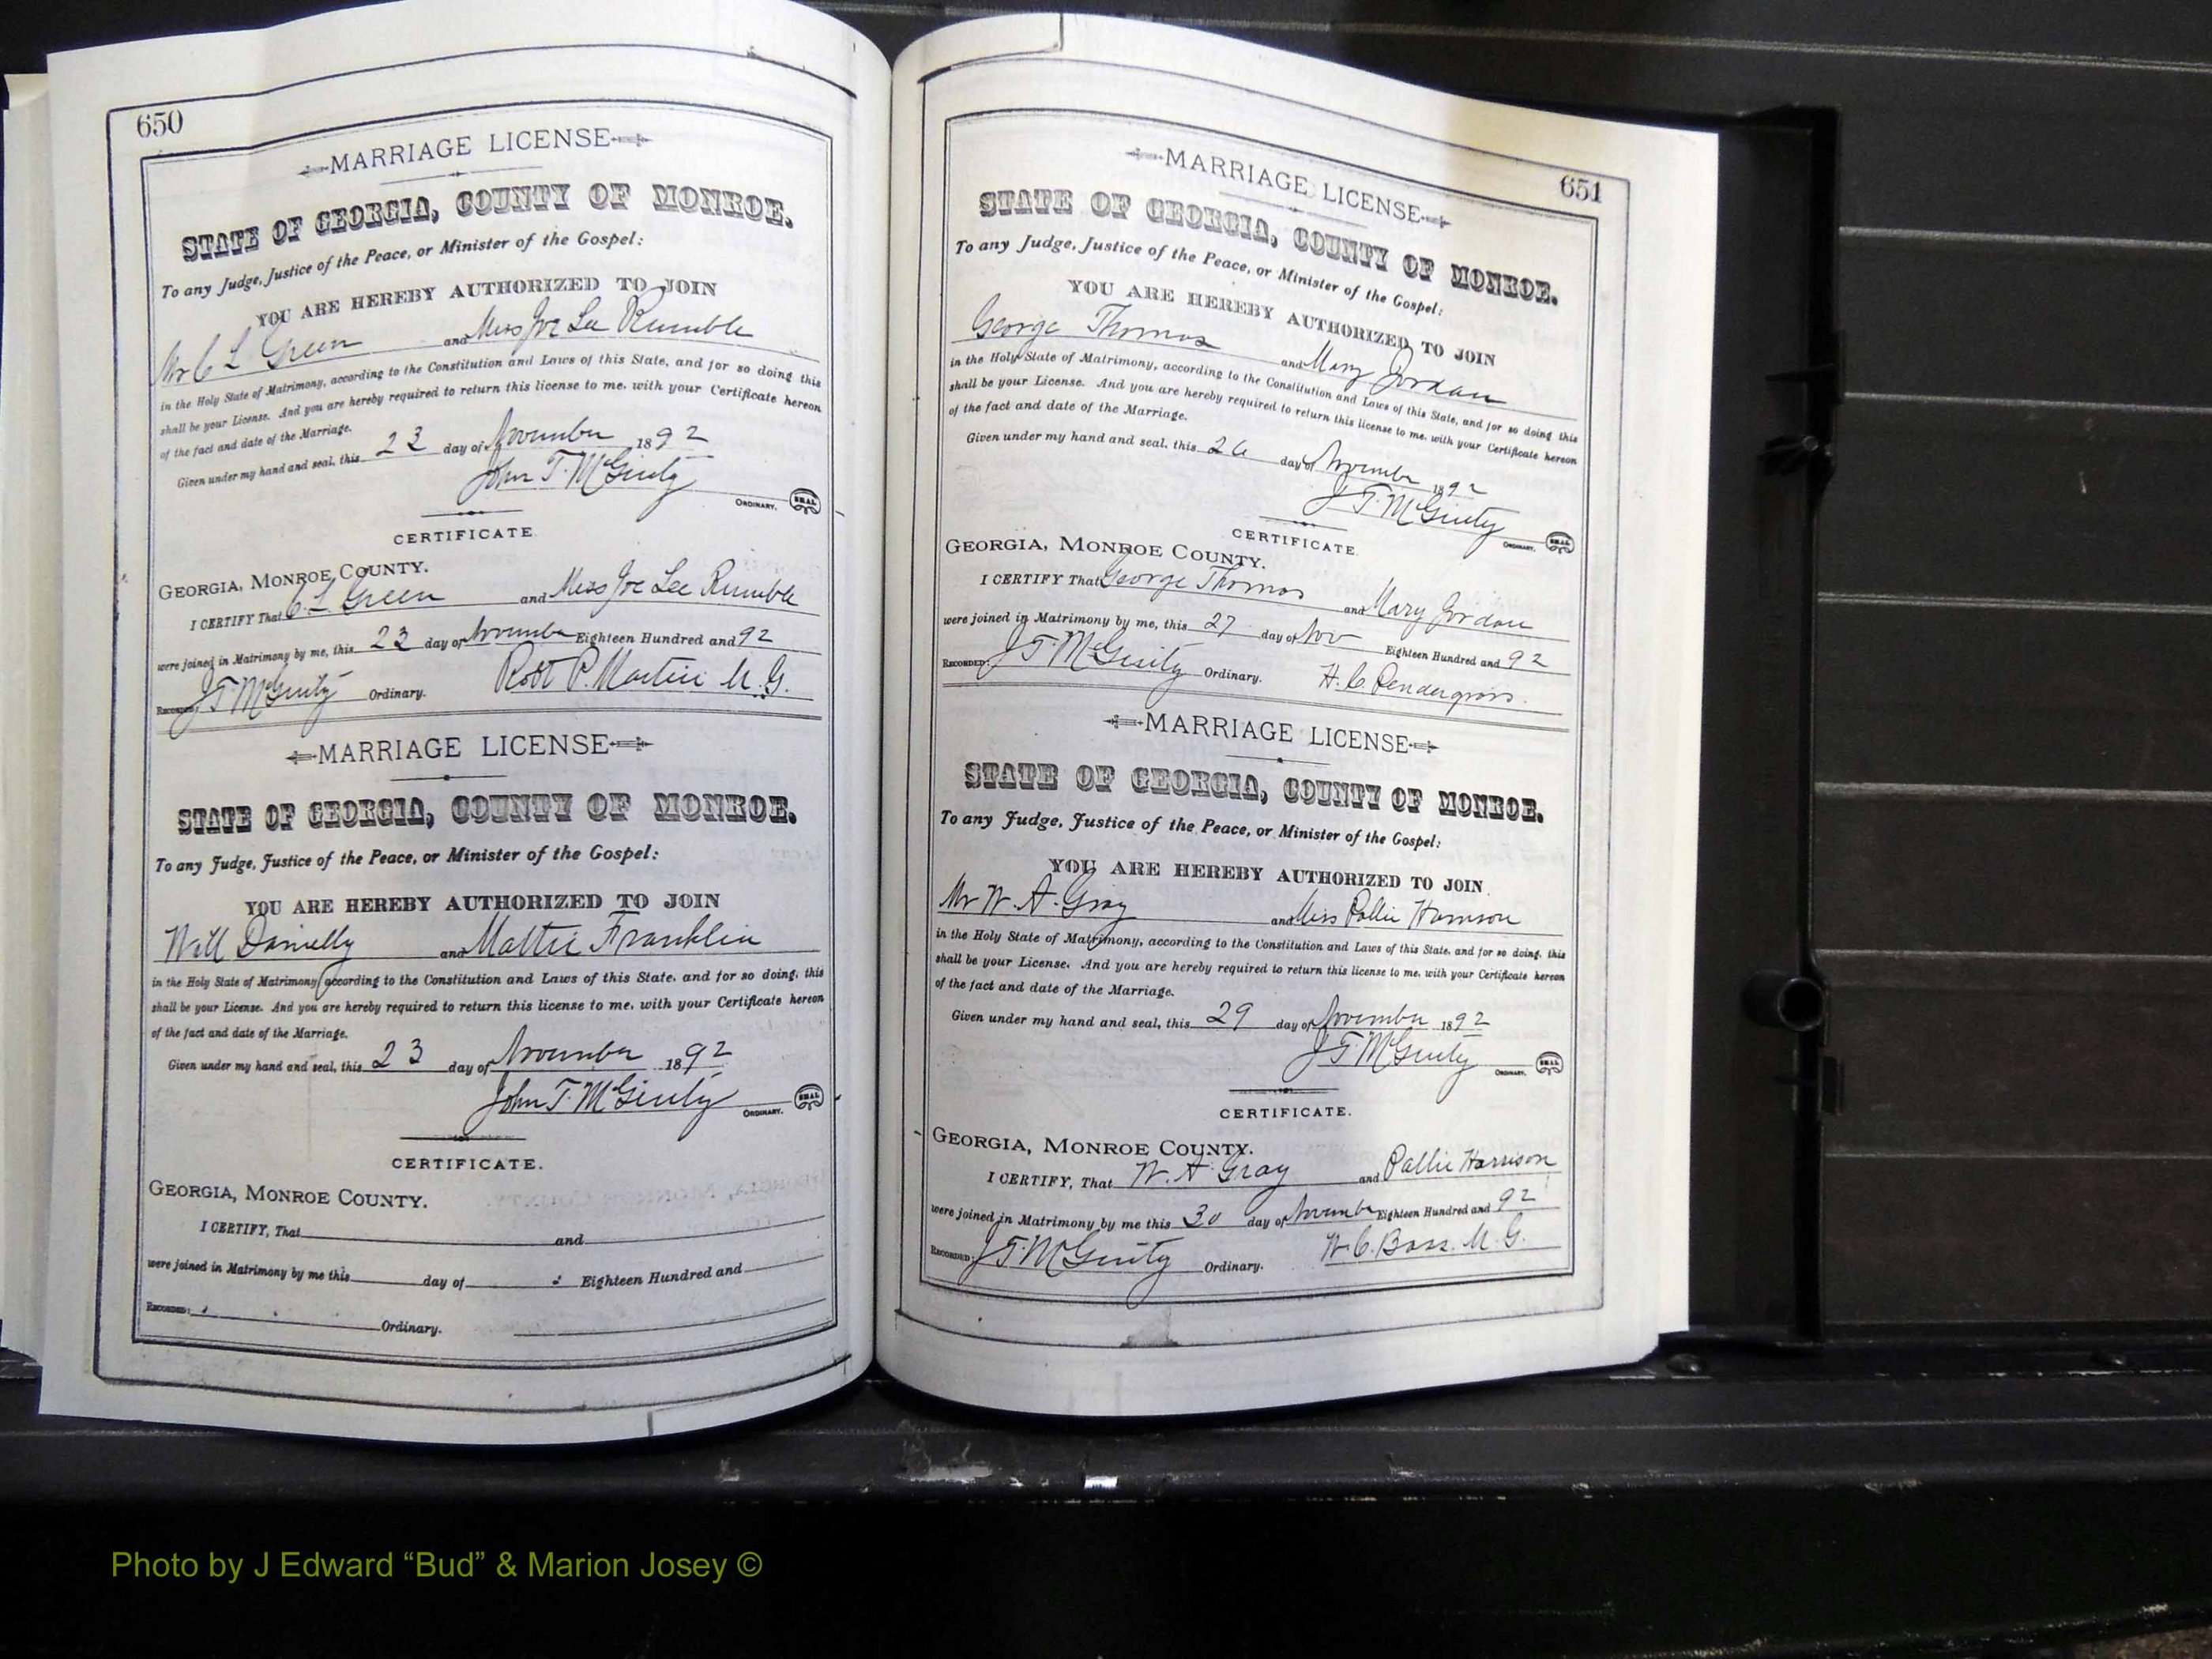 650
MARRIAGE LICENSE
STATE OF GEORGIA, COUNTY OF MONROE.
To any Judge, Justice of the Peace, or Minister of the Gospel:
YOU ARE HEREBY AUTHORIZED TO JOIN
Mr C L Green and Miss Joe Lee Rumble
in the Holy State of Matrimony, according to the Constitution and Laws of this State, and for so doing this
shall be your License. And you are hereby required to return this license to me, with your Certificate hereon
of the fact and date of the Marriage.
Given under my hand and seal, this 23 day of November 1892
John T. McGinty
ORDINARY. SEAL
CERTIFICATE
GEORGIA, MONROE COUNTY.
I CERTIFY That C. L. Green and Miss Joe Lee Rumble
were joined in Matrimony by me, this 23 day of November Eighteen Hundred and 92
Robt P. Martin M.G.
RECORDED: J T McGinty Ordinary.
MARRIAGE LICENSE
STATE OF GEORGIA, COUNTY OF MONROE.
To any Judge, Justice of the Peace, or Minister of the Gospel:
YOU ARE HEREBY AUTHORIZED TO JOIN
Will Danielly and Mattie Franklin
in the Holy State of Matrimony, according to the Constitution and Laws of this State, and for so doing, this
shall be your License. And you are hereby required to return this license to me, with your Certificate hereon
of the fact and date of the Marriage.
Given under my hand and seal, this 23 day of November 1892
John T. McGinty
ORDINARY. SEAL
CERTIFICATE.
GEORGIA, MONROE COUNTY.
I CERTIFY, That and
were joined in Matrimony by me this day of Eighteen Hundred and
RECORDED: Ordinary.
651
MARRIAGE LICENSE
STATE OF GEORGIA, COUNTY OF MONROE.
To any Judge, Justice of the Peace, or Minister of the Gospel:
YOU ARE HEREBY AUTHORIZED TO JOIN
George Thomas and Mary Jordan
in the Holy State of Matrimony, according to the Constitution and Laws of this State, and for so doing this
shall be your License. And you are hereby required to return this license to me, with your Certificate hereon
of the fact and date of the Marriage.
Given under my hand and seal, this 26 day of November 1892
J T. McGinty
ORDINARY. SEAL
CERTIFICATE
GEORGIA, MONROE COUNTY.
I CERTIFY That George Thomas and Mary Jordan
were joined in Matrimony by me, this 27 day of Nov Eighteen Hundred and 92
RECORDED: J T. McGinty Ordinary. H. C. Pendergrass.
MARRIAGE LICENSE
STATE OF GEORGIA, COUNTY OF MONROE.
To any Judge, Justice of the Peace, or Minister of the Gospel:
YOU ARE HEREBY AUTHORIZED TO JOIN
Mr W. A. Gray and Miss Pallie Harrison
in the Holy State of Matrimony, according to the Constitution and Laws of this State, and for so doing, this
shall be your License. And you are hereby required to return this license to me, with your Certificate hereon
of the fact and date of the Marriage.
Given under my hand and seal, this 29 day of November 1892
J T. McGinty
ORDINARY. SEAL
CERTIFICATE.
GEORGIA, MONROE COUNTY.
I CERTIFY, That W. A. Gray and Pallie Harrison
were joined in Matrimony by me this 30 day of November Eighteen Hundred and 92
RECORDED: J T. McGinty Ordinary. W. C. Bass. M. G.
Photo by J Edward “Bud” & Marion Josey ©